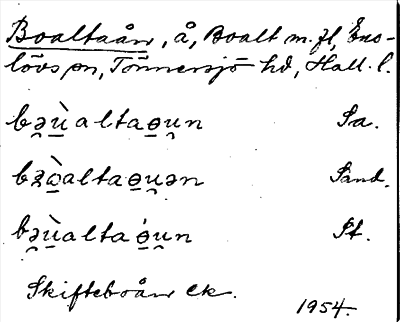 Boaltaån, å, Boalt m. fl., Eno-
lövs sn, Tönnersjö hd, Hall. l.
bə̯ùaltaɵu̯n Sa.
bꝛὼaltaɵu̯ən Sand.
bə̯ùaltaɵ́u̯n St.
Skifteboån ek.
1954.